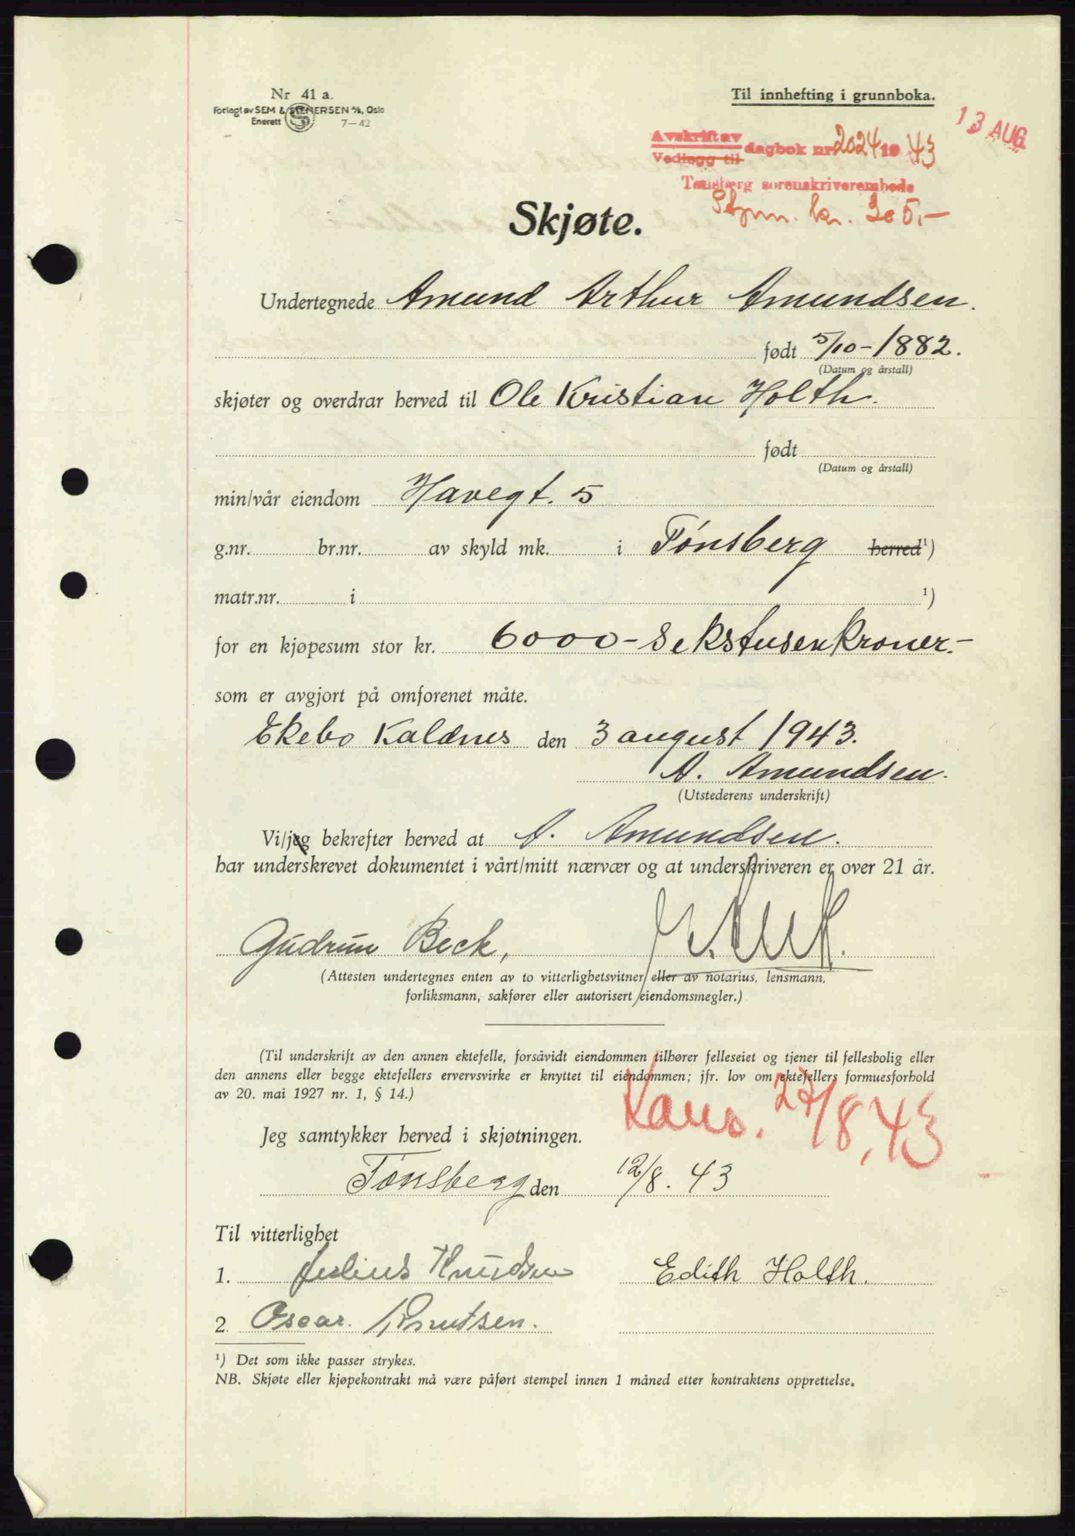 Nr 41 a.
Forlagt av SEM & STENERSEN A/S, Oslo
Enerett 7—42
Til innhefting i grunnboka.
13 AUG
Avskrift av
Vedlegg til dagbok nr 2024 19 43
Tønsberg sorenskriverembede
Stpm. kr. 305,-
Skjøte.
Undertegnede Amund Arthur Amundsen.
født 5/10-1882.
(Datum og årstall)
skjøter og overdrar herved til Ole Kristian Holth.
født
(Datum og årstall)
min/vår eiendom Havegt. 5
g.nr. br.nr. av skyld mk. i Tønsberg herred¹)
matr.nr. i ¹)
for en kjøpesum stor kr. 6000- Sekstusenkroner.-
som er avgjort på omforenet måte.
Ekebo Kaldnes den 3 august 1943.
A. Amundsen.
(Utstederens underskrift)
Vi/jeg bekrefter herved at A. Amundsen.
har underskrevet dokumentet i vårt/mitt nærvær og at underskriveren er over 21 år.
Gudrun Beck,
(Attesten undertegnes enten av to vitterlighetsvitner eller av notarius, lensmann,
forliksmann, sakfører eller autorisert eiendomsmegler.)
(Til underskrift av den annen ektefelle, forsåvidt eiendommen tilhører felleseiet og tjener til fellesbolig eller
den annens eller begge ektefellers ervervsvirke er knyttet til eiendommen; jfr. lov om ektefellers formuesforhold
av 20. mai 1927 nr. 1, § 14.)
Kans. 27/8.43
Jeg samtykker herved i skjøtningen.
Tønsberg den 12/8. 43
Til vitterlighet
1. Julius Knudsen Edith Holth.
2. Oscar. Knutsen.
¹) Det som ikke passer strykes.
NB. Skjøte eller kjøpekontrakt må være påført stempel innen 1 måned etter kontraktens opprettelse.